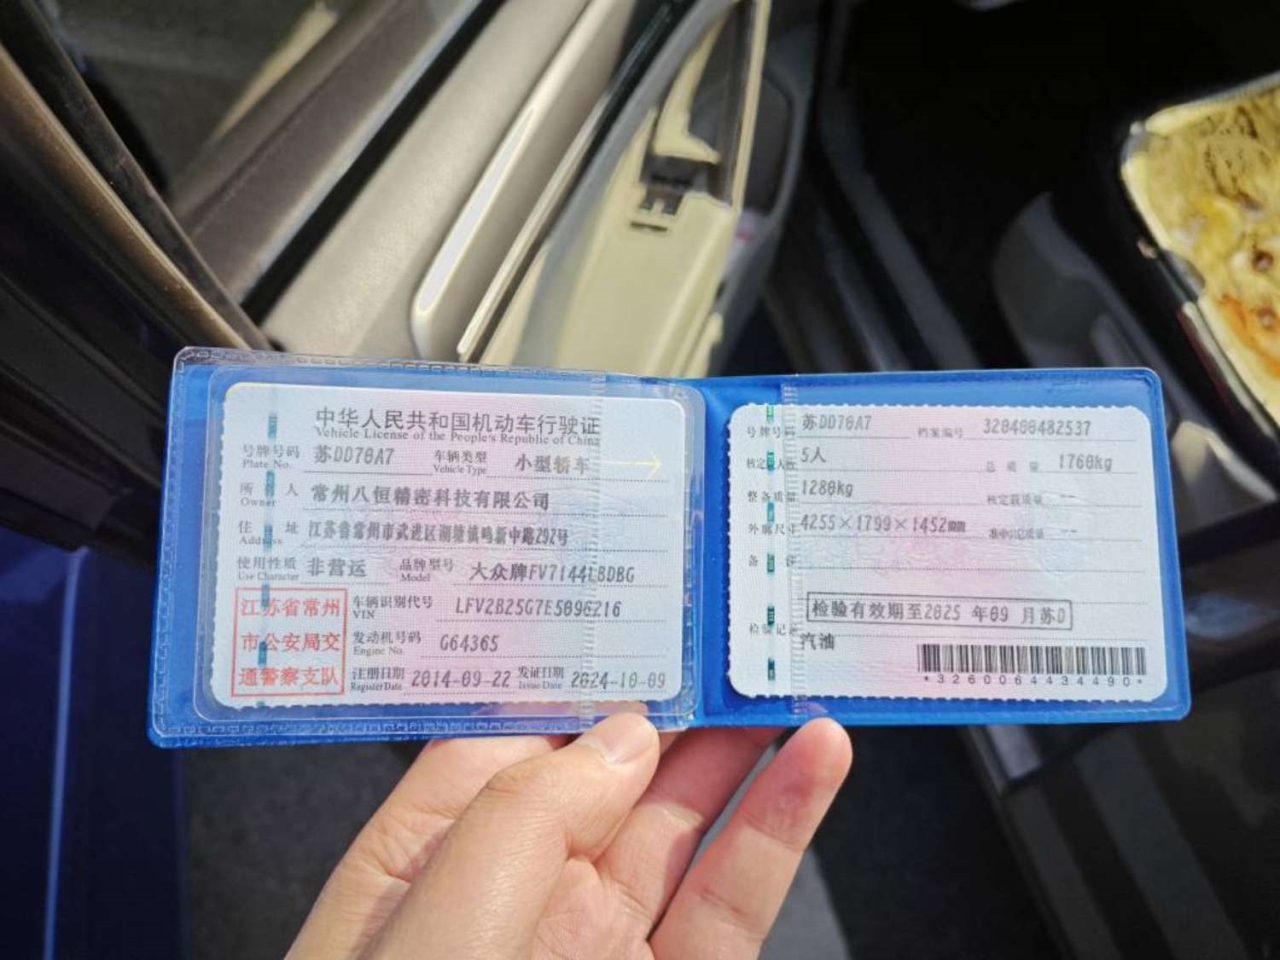 中华人民共和国机动车行驶证
Vehicle License of the People's Republic of China
号牌号码 苏DD70A7 车辆类型 小型轿车
Plate No. Vehicle Type
所有人 常州八恒精密科技有限公司
Owner
住址 江苏省常州市武进区湖塘镇鸣新中路292号
Address
使用性质 非营运 品牌型号 大众牌FV7144LBDBG
Use Character Model
江苏省常州
市公安局交
通警察支队
车辆识别代号 LFV2B25G7E5096216
VIN
发动机号码 G64365
Engine No.
注册日期 2014-09-22 发证日期 2024-10-09
Register Date Issue Date
号牌号码 苏DD70A7 档案编号 320400482537
核定人数 5人 总质量 1760kg
整备质量 1280kg 核定载质量 --
外廓尺寸 4255×1799×1452mm 准牵引总质量 --
备注
检验有效期至2025 年09 月苏D
检验记录
汽油
*3260064434490*